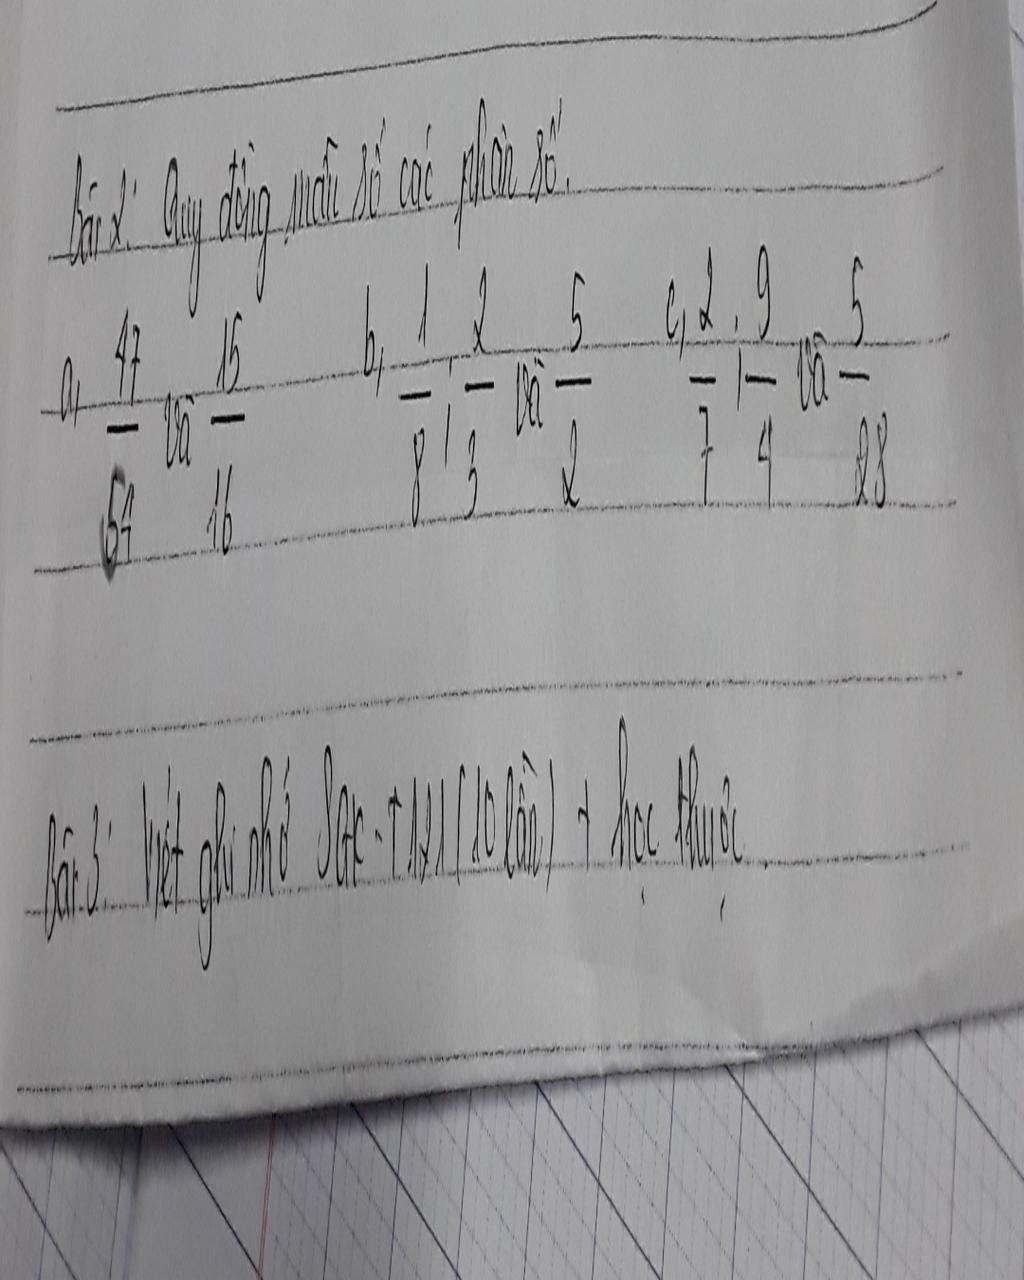 Bài 2: Quy đồng mẫu số các phân số.
a, 47/54 và 15/16 b, 1/8 ; 2/3 và 5/2 c, 2/7 ; 9/4 và 5/28
Bài 3: Viết ghi nhớ SGK - T121 (10 lần) + học thuộc